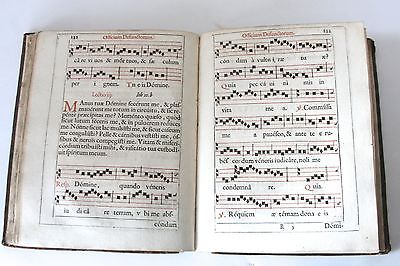 Officium Defunctorum.
care vi uos & mór tuos, & sæ culum
per i gnem. Tu eis Dómine.
Lectio iij. Iob 10. b
MAnus tuæ Dómine fecérunt me, & plas-
mauérunt me totum in circuitu, & sic re-
pénte præcipitas me? Meménto quæso,
quòd sicut lutum féceris me, & in
me. Nonne sicut lac mulsísti me, & sicut cáseum me
coagulásti? Pelle & cárnibus vestísti me: óssibus
& neruis compegísti me. Vitam & miseri-
córdiam tribuísti mihi, & visitátio tua custodíuit
spíritum meum.
Resp. Dómine, quando véneris
iu di cá re terram, v bi me abs
cóndam
Officium Defunctorum.
con dam à vultu i ræ tu æ?
Quia pec cá ui ni mis in
vita me a. ℣. Commíssa
me a pauésco, & ante te e ru
bés co dum véneris iudicáre, noli me
condemná re. Quia.
℣. Réquiem æ térnam dona e is
R 3 Dómi-